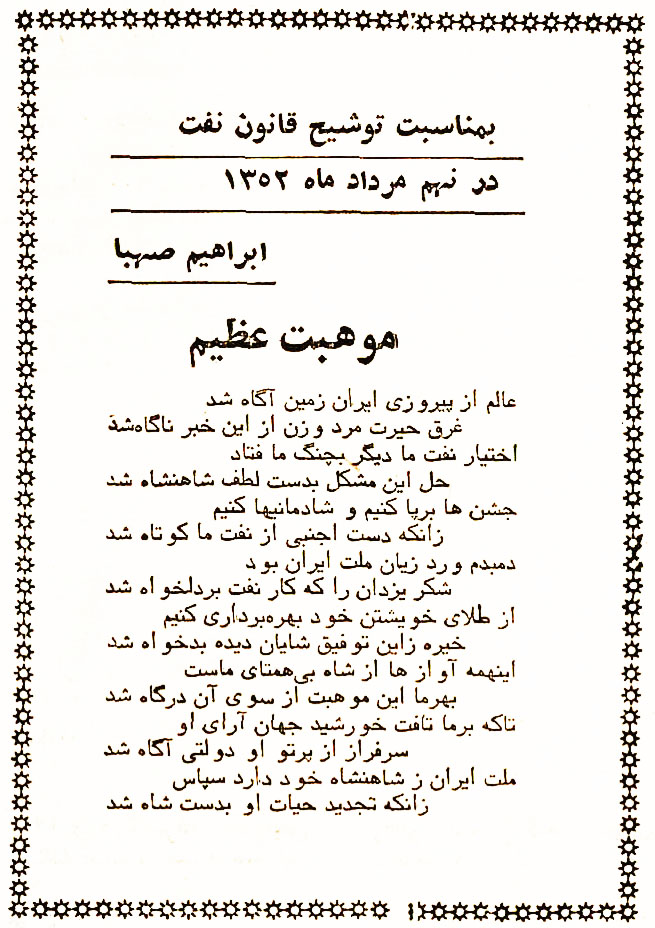 بمناسبت توشیح قانون نفت
در نهم مرداد ماه ۱۳۵۲
ابراهیم صهبا
موهبت عظیم
عالم از پیروزی ایران زمین آگاه شد
غرق حیرت مرد و زن از این خبر ناگاه شد
اختیار نفت ما دیگر بچنگ ما فتاد
حل این مشکل بدست لطف شاهنشاه شد
جشن ها برپا کنیم و شادمانیها کنیم
زانکه دست اجنبی از نفت ما کوتاه شد
دمبدم ورد زبان ملت ایران بود
شکر یزدان را که کار نفت بردلخواه شد
از طلای خویشتن خود بهره‌برداری کنیم
خیره زاین توفیق شایان دیده بدخواه شد
اینهمه آوازها از شاه بی‌همتای ماست
بهرما این موهبت از سوی آن درگاه شد
تاکه برما تافت خورشید جهان آرای او
سرفراز از پرتو او دولتی آگاه شد
ملت ایران ز شاهنشاه خود دارد سپاس
زانکه تجدید حیات او بدست شاه شد